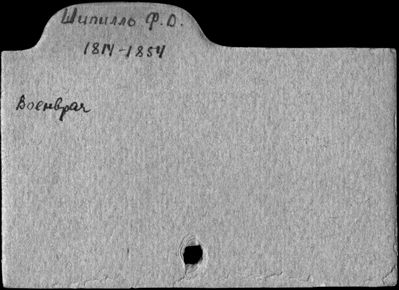 Шипилль Ф.О.
1814-1854
Военврач